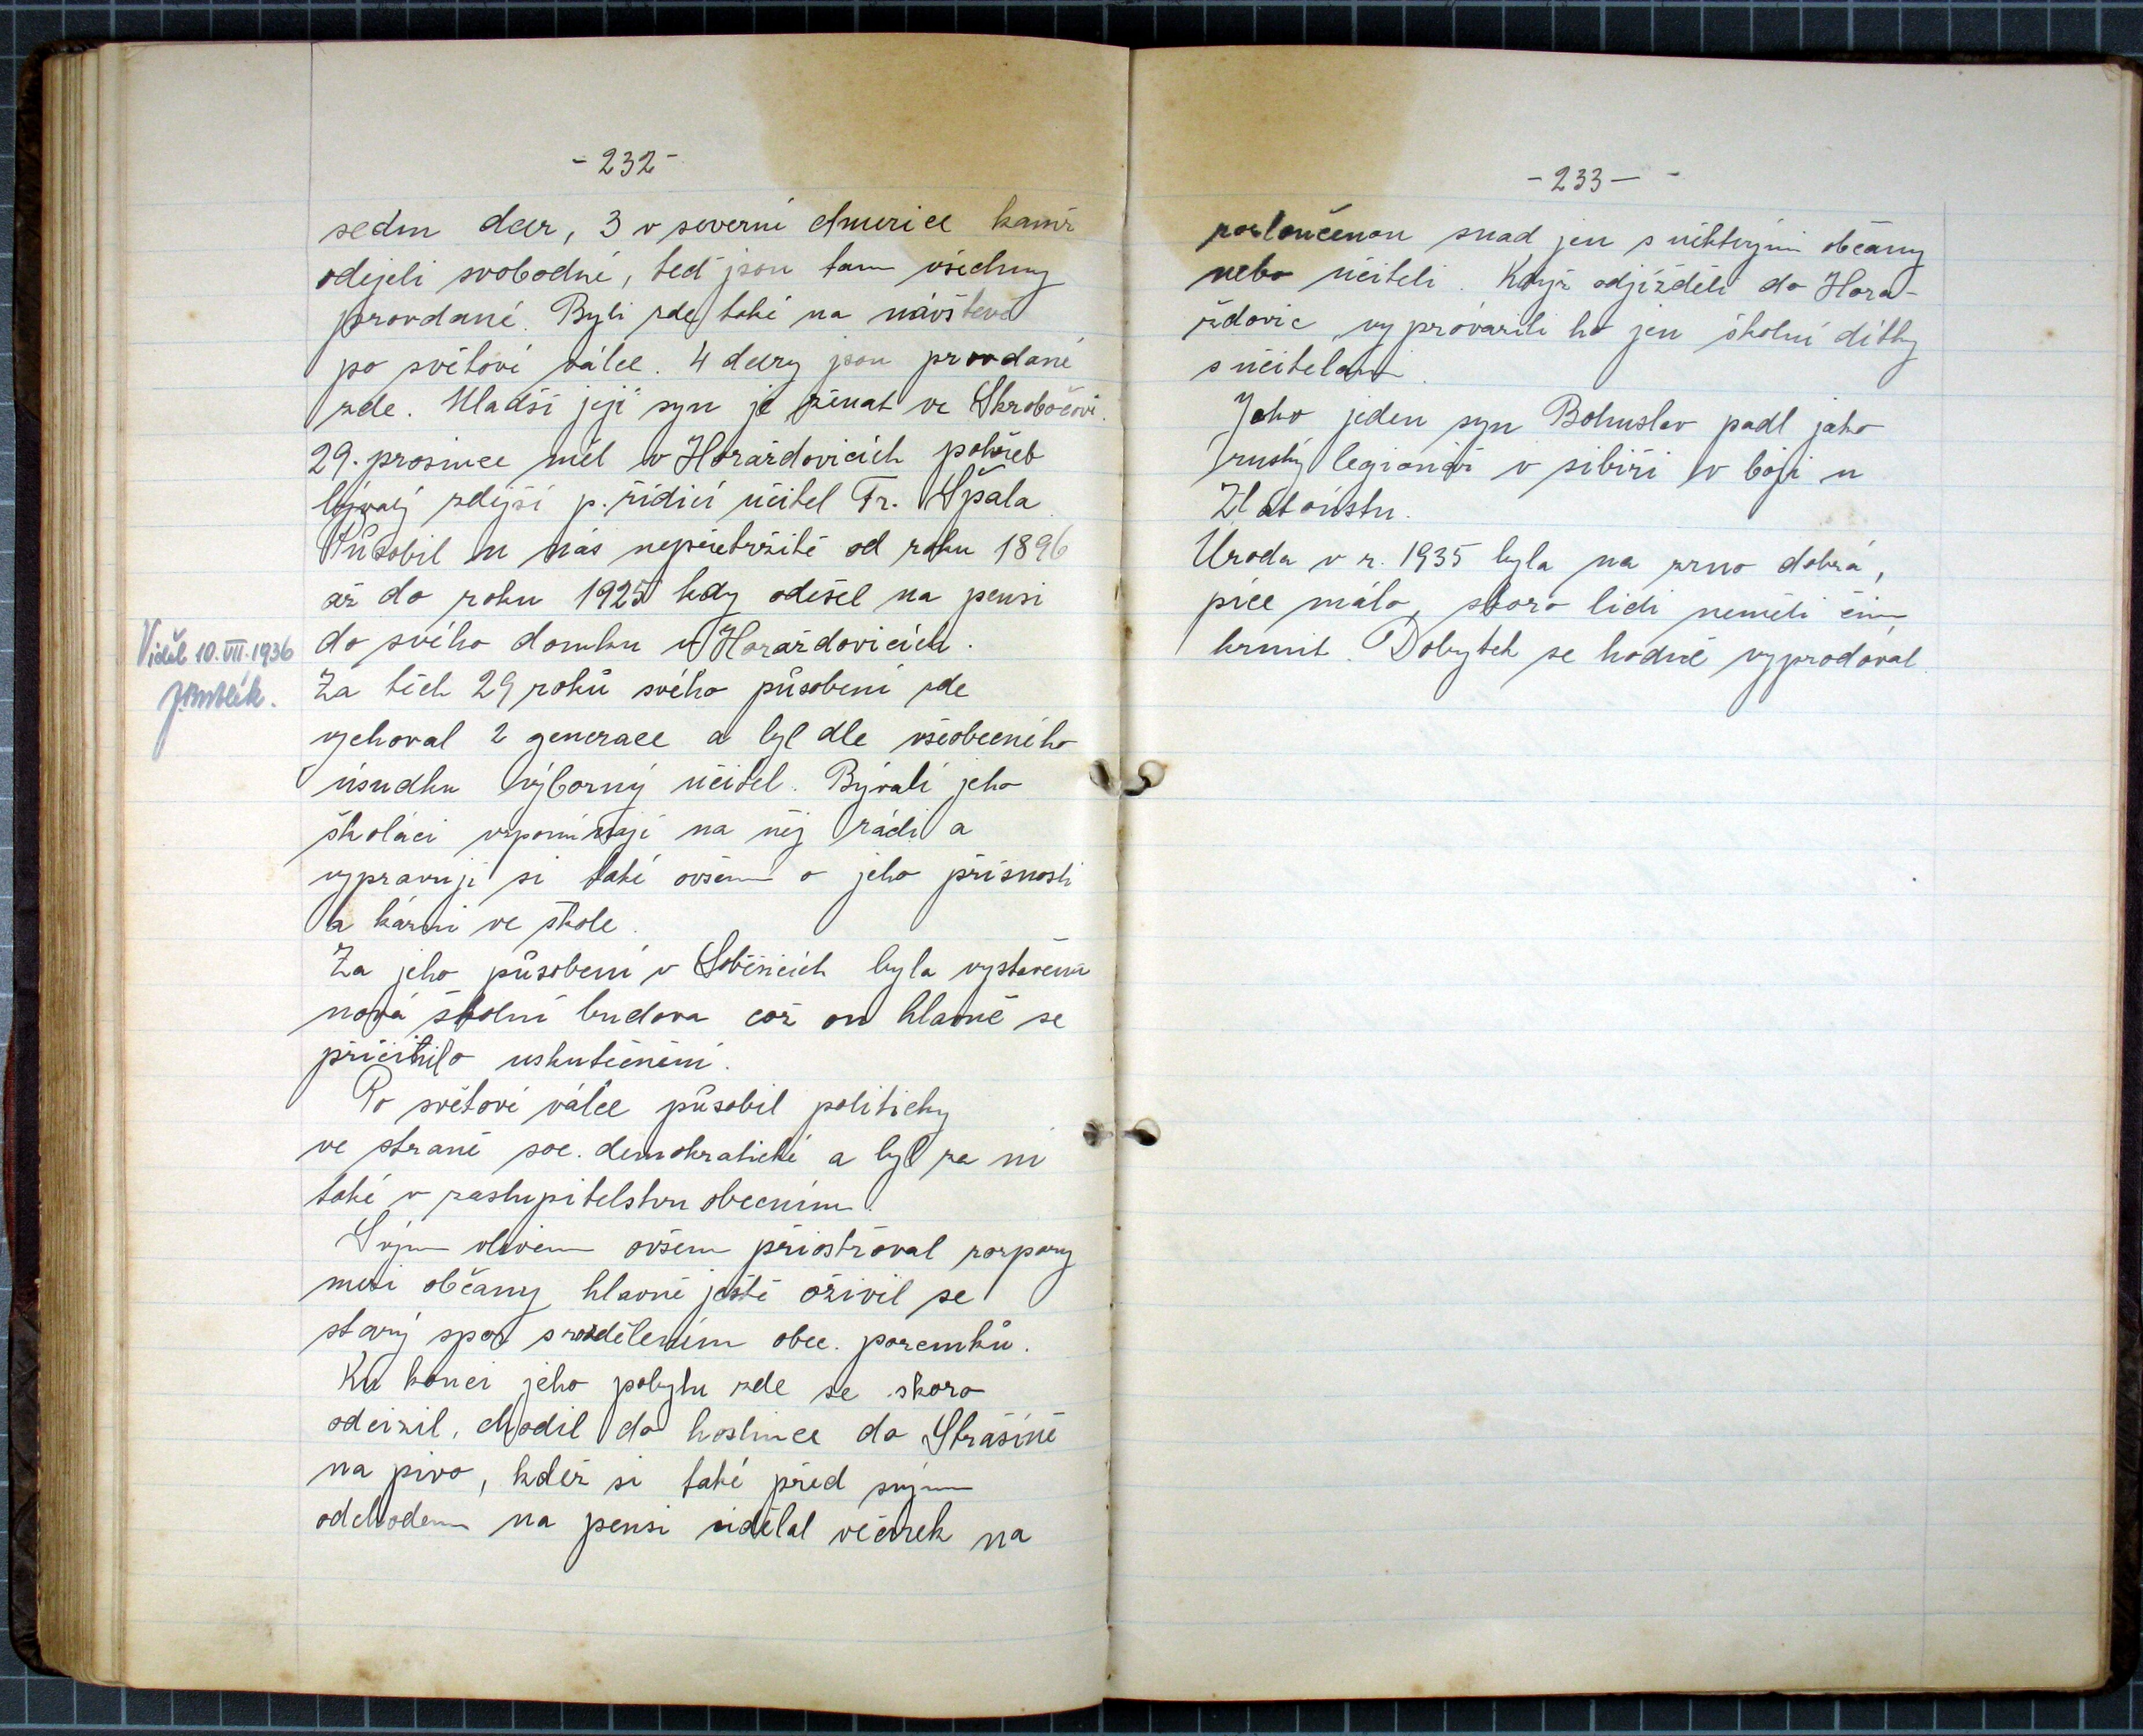 - 232 -
sedm dcer, 3 v severní Americe kamž
odejeli svobodné, teď jsou tam všechny
provdané. Byli zde také na návštevě
po světové válce. 4 dcery jsou provdané
zde. Mladší její syn je ženat ve Skrobočově.
29. prosince měl v Horažďovicích pohřeb
bývalý zdejší p. řídicí učitel Fr. Špala.
Působil u nás nepřetržitě od roku 1896
až do roku 1925 kdy odešel na pensi
do svého domku v Horažďovicích.
Viděl 10.VII.1936
Za těch 29 roků svého působení zde
vychoval 2 generace a byl dle všeobecného
úsudku výborný učitel. Bývalí jeho
školáci vzpomínají na něj rádi a
vypravují si také ovšem o jeho přísnosti
a kázni ve škole.
Za jeho působení v Soběšicích byla vystavěna
nová školní budova což on hlavně se
přičinilo uskutečnění.
Po světové válce působil politicky
ve straně soc. demokratické a byl za ni
také v zastupitelstvu obecním.
Svým vlivem ovšem přiostřoval rozpory
mezi občany hlavně ještě oživil se
starý spor s rozdělením obec. pozemků.
Ku konci jeho pobytu zde se skoro
odcizil, chodil do hostince do Strašíně
na pivo, kdež si také před svým
odchodem na pensi udělal večírek na
- 233 - -
rozloučenou snad jen s některými občany
nebo učiteli. Když odjížděli do Hora-
žďovic vyprovázeli ho jen školní dítky
s učitelami.
Jeho jeden syn Bohuslav padl jako
ruský legionář v sibiři v boji u
Zlatoústu.
Úroda v r. 1935 byla na zrno dobrá,
píce málo, skoro lidi neměli čím
krmit. Dobytek se hodně vyprodával.